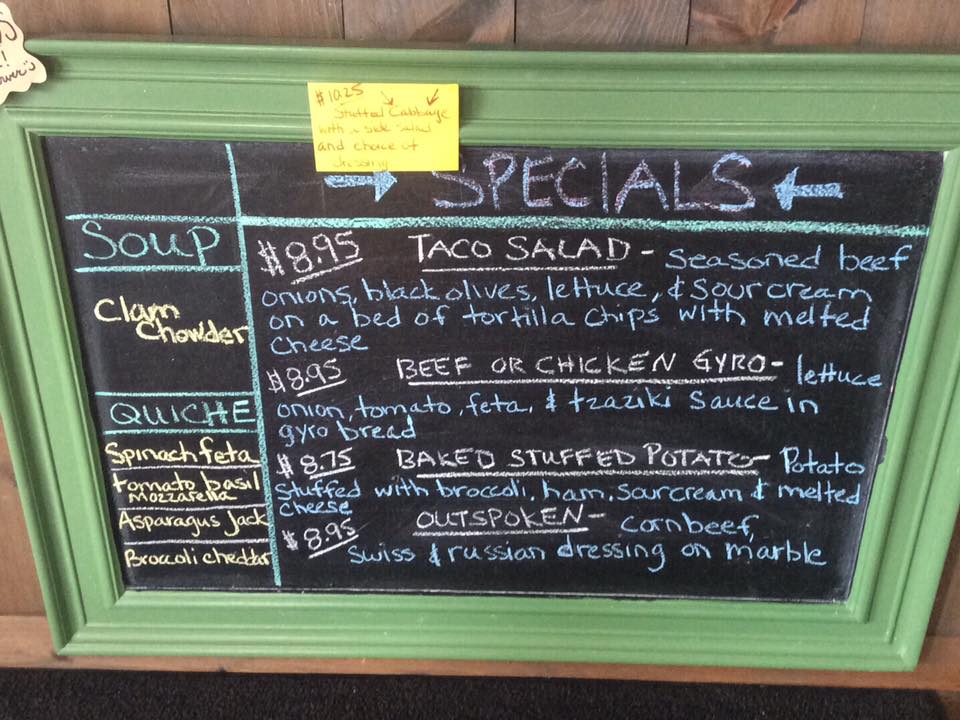 $10.25
Stuffed Cabbage
with a side salad
and choice of
dressing
SPECIALS
Soup
Clam
Chowder
QUICHE
Spinach feta
tomato basil
mozzarella
Asparagus jack
Broccoli cheddar
$8.95 TACO SALAD - seasoned beef
onions, black olives, lettuce, & sour cream
on a bed of tortilla chips with melted
cheese
$8.95 BEEF OR CHICKEN GYRO - lettuce
onion, tomato, feta, & tzaziki sauce in
gyro bread
$8.75 BAKED STUFFED POTATO - Potato
stuffed with broccoli, ham, sour cream & melted
cheese
$8.95 OUTSPOKEN - corn beef,
swiss & russian dressing on marble